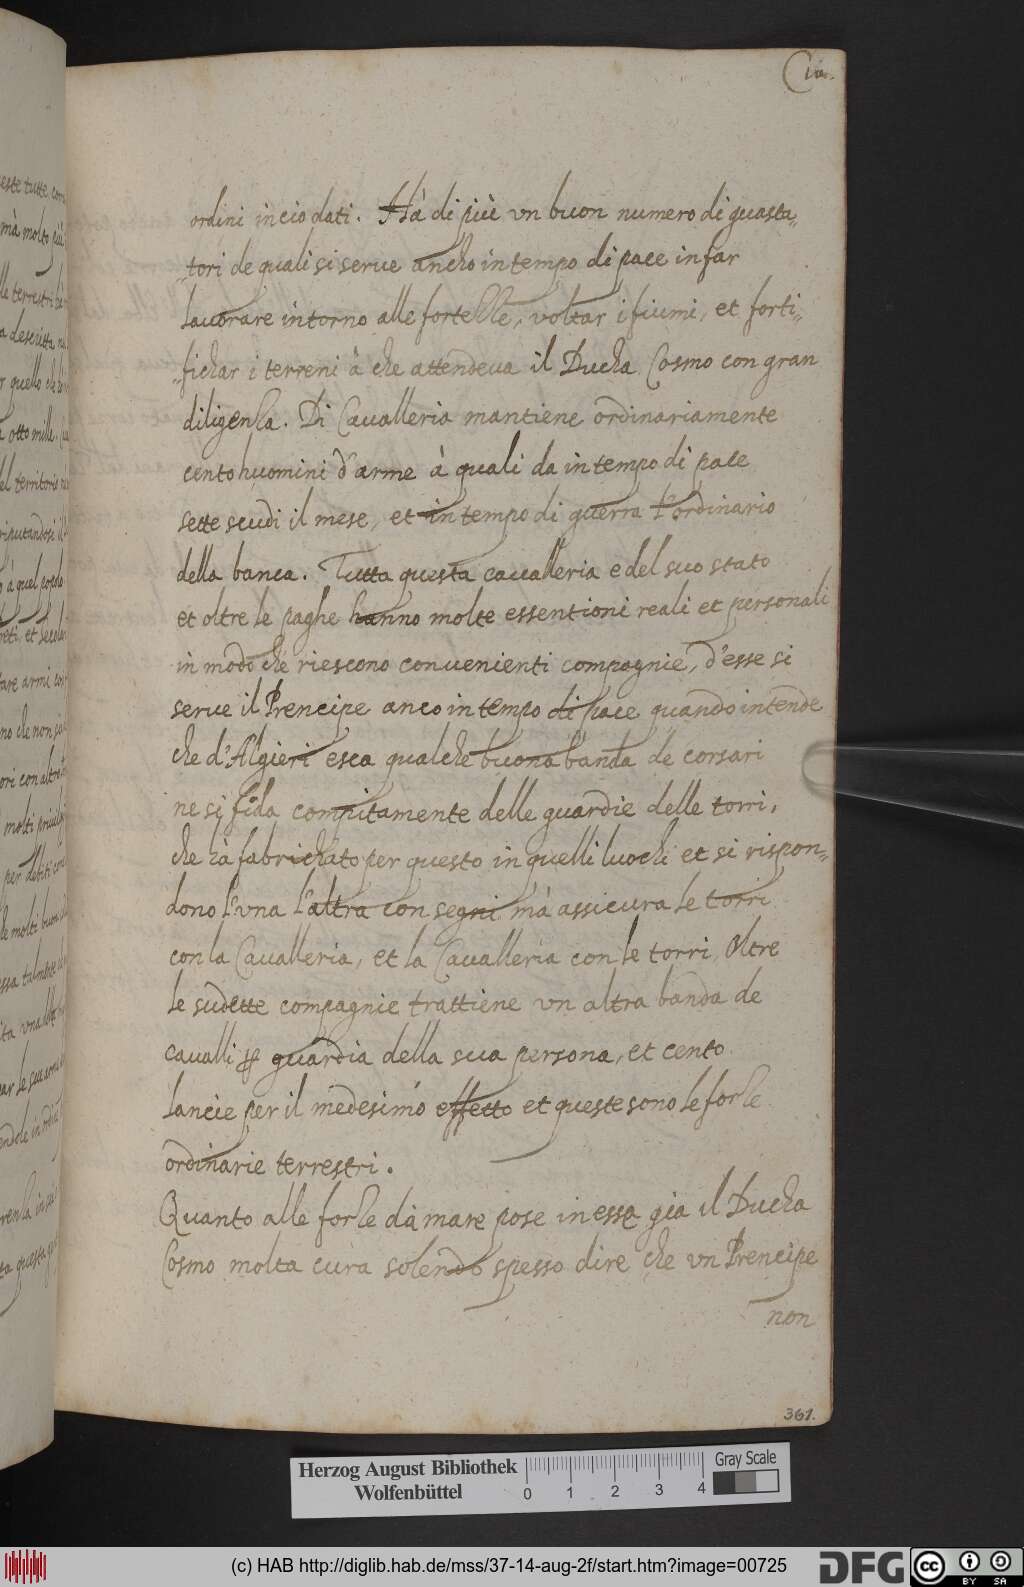 ordini in cio dati. Hà di più vn buon numero di guasta„
„tori de quali si serue ancho in tempo di pace in far
lauorare intorno alle fortezze, voltar i fiumi, et forti„
„fichar i terreni à che attendeua il Ducha Cosmo con gran
diligenza. Di Caualleria mantiene ordinariamente
cento huomini d'arme à quali da in tempo di pace
sette scudi il mese, et in tempo di guerra l'ordinario
della banca. Tutta questa caualleria e del suo stato
et oltre le paghe hanno molte essentioni reali et personali
in modo che riescono conuenienti compagnie, d'esse si
serue il Prencipe anco in tempo di pace quando intende
che d'Algieri esca qualche buona banda de corsari
ne si fida compitamente delle guardie delle torri,
che hà fabrichato per questo in quelli luochi et si rispon„
dono l'vna l'altra con segni mà assicura le torri
con la Caualleria, et la Caualleria con le torri, Oltre
le sudette compagnie trattiene vn altra banda de
caualli per guardia della sua persona, et cento
lancie per il medesimo effetto et queste sono le forze
ordinarie terrestri.
Quanto alle forze dà mare pose in esse gia il Ducha
Cosmo molta cura solendo spesso dire che vn Prencipe
non
361.
Herzog August Bibliothek
Wolfenbüttel
0 1 2 3 4
Gray Scale
(c) HAB http://diglib.hab.de/mss/37-14-aug-2f/start.htm?image=00725
DFG
cc BY SA